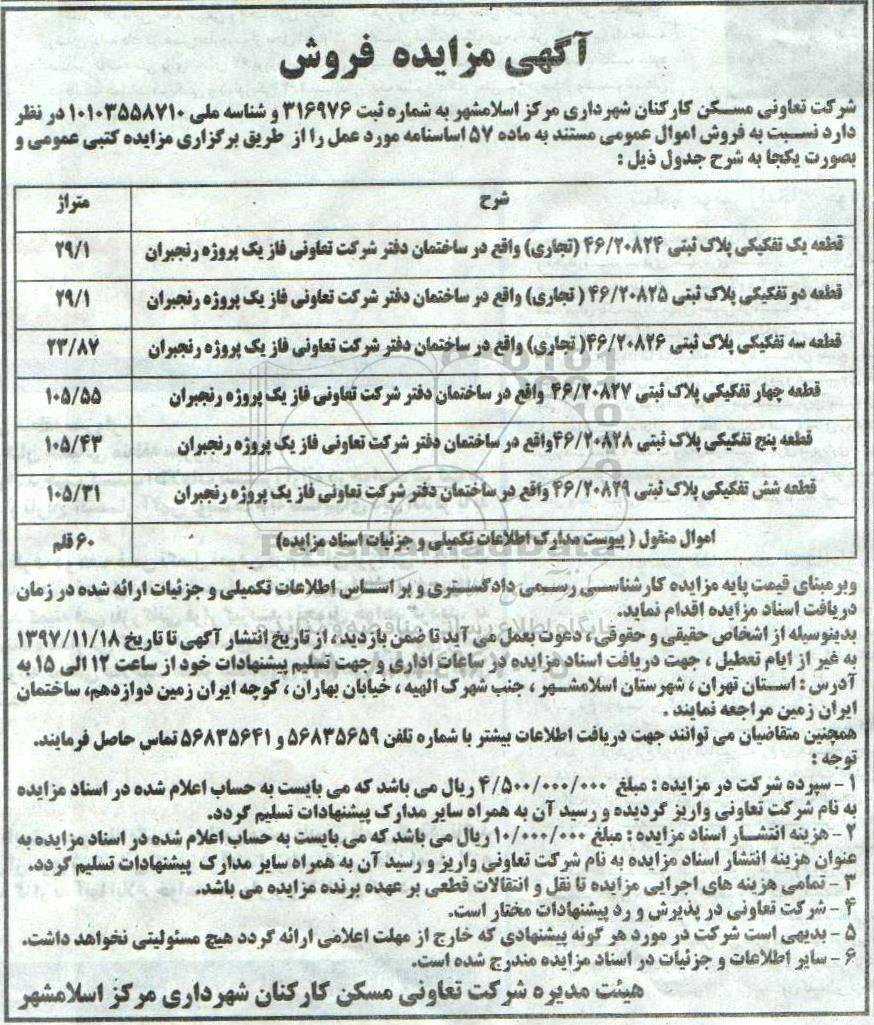 آگهی مزایده فروش
شرکت تعاونی مسکن کارکنان شهرداری مرکز اسلامشهر به شماره ثبت ۳۱۶۹۷۶ و شناسه ملی ۱۰۱۰۳۵۵۸۷۱۰ در نظر
دارد نسبت به فروش اموال عمومی مستند به ماده ۵۷ اساسنامه مورد عمل را از طریق برگزاری مزایده کتبی عمومی و
بصورت یکجا به شرح جدول ذیل :
شرح متراژ
قطعه یک تفکیکی پلاک ثبتی ۴۶/۲۰۸۲۴ (تجاری) واقع در ساختمان دفتر شرکت تعاونی فاز یک پروژه رنجبران ۲۹/۱
قطعه دو تفکیکی پلاک ثبتی ۴۶/۲۰۸۲۵ ( تجاری) واقع در ساختمان دفتر شرکت تعاونی فاز یک پروژه رنجبران ۲۹/۱
قطعه سه تفکیکی پلاک ثبتی ۴۶/۲۰۸۲۶( تجاری) واقع در ساختمان دفتر شرکت تعاونی فاز یک پروژه رنجبران ۲۳/۸۷
قطعه چهار تفکیکی پلاک ثبتی ۴۶/۲۰۸۲۷ واقع در ساختمان دفتر شرکت تعاونی فاز یک پروژه رنجبران ۱۰۵/۵۵
قطعه پنج تفکیکی پلاک ثبتی ۴۶/۲۰۸۲۸واقع در ساختمان دفتر شرکت تعاونی فاز یک پروژه رنجبران ۱۰۵/۴۳
قطعه شش تفکیکی پلاک ثبتی ۴۶/۲۰۸۲۹ واقع در ساختمان دفتر شرکت تعاونی فاز یک پروژه رنجبران ۱۰۵/۳۱
اموال منقول ( پیوست مدارک اطلاعات تکمیلی و جزئیات اسناد مزایده) ۶۰ قلم
وبر مبنای قیمت پایه مزایده کارشناسی رسمی دادگستری و بر اساس اطلاعات تکمیلی و جزئیات ارائه شده در زمان
دریافت اسناد مزایده اقدام نماید.
بدینوسیله از اشخاص حقیقی و حقوقی ، دعوت بعمل می آید تا ضمن بازدید ، از تاریخ انتشار آگهی تا تاریخ ۱۳۹۷/۱۱/۱۸
به غیر از ایام تعطیل ، جهت دریافت اسناد مزایده در ساعات اداری و جهت تسلیم پیشنهادات خود از ساعت ۱۲ الی ۱۵ به
آدرس : استان تهران ، شهرستان اسلامشهر ، جنب شهرک الهیه ، خیابان بهاران ، کوچه ایران زمین دوازدهم، ساختمان
ایران زمین مراجعه نمایند .
همچنین متقاضیان می توانند جهت دریافت اطلاعات بیشتر با شماره تلفن ۵۶۸۳۵۶۵۹ و ۵۶۸۳۵۶۴۱ تماس حاصل فرمایند.
توجه :
۱ - سپرده شرکت در مزایده : مبلغ ۴/۵۰۰/۰۰۰/۰۰۰ ریال می باشد که می بایست به حساب اعلام شده در اسناد مزایده
به نام شرکت تعاونی واریز گردیده و رسید آن به همراه سایر مدارک پیشنهادات تسلیم گردد.
۲ - هزینه انتشار اسناد مزایده : مبلغ ۱۰/۰۰۰/۰۰۰ ریال می باشد که می بایست به حساب اعلام شده در اسناد مزایده به
عنوان هزینه انتشار اسناد مزایده به نام شرکت تعاونی واریز و رسید آن به همراه سایر مدارک پیشنهادات تسلیم گردد.
۳ - تمامی هزینه های اجرایی مزایده تا نقل و انتقالات قطعی بر عهده برنده مزایده می باشد.
۴ - شرکت تعاونی در پذیرش و رد پیشنهادات مختار است.
۵ - بدیهی است شرکت در مورد هر گونه پیشنهادی که خارج از مهلت اعلامی ارائه گردد هیچ مسئولیتی نخواهد داشت.
۶ - سایر اطلاعات و جزئیات در اسناد مزایده مندرج شده است.
هیئت مدیره شرکت تعاونی مسکن کارکنان شهرداری مرکز اسلامشهر